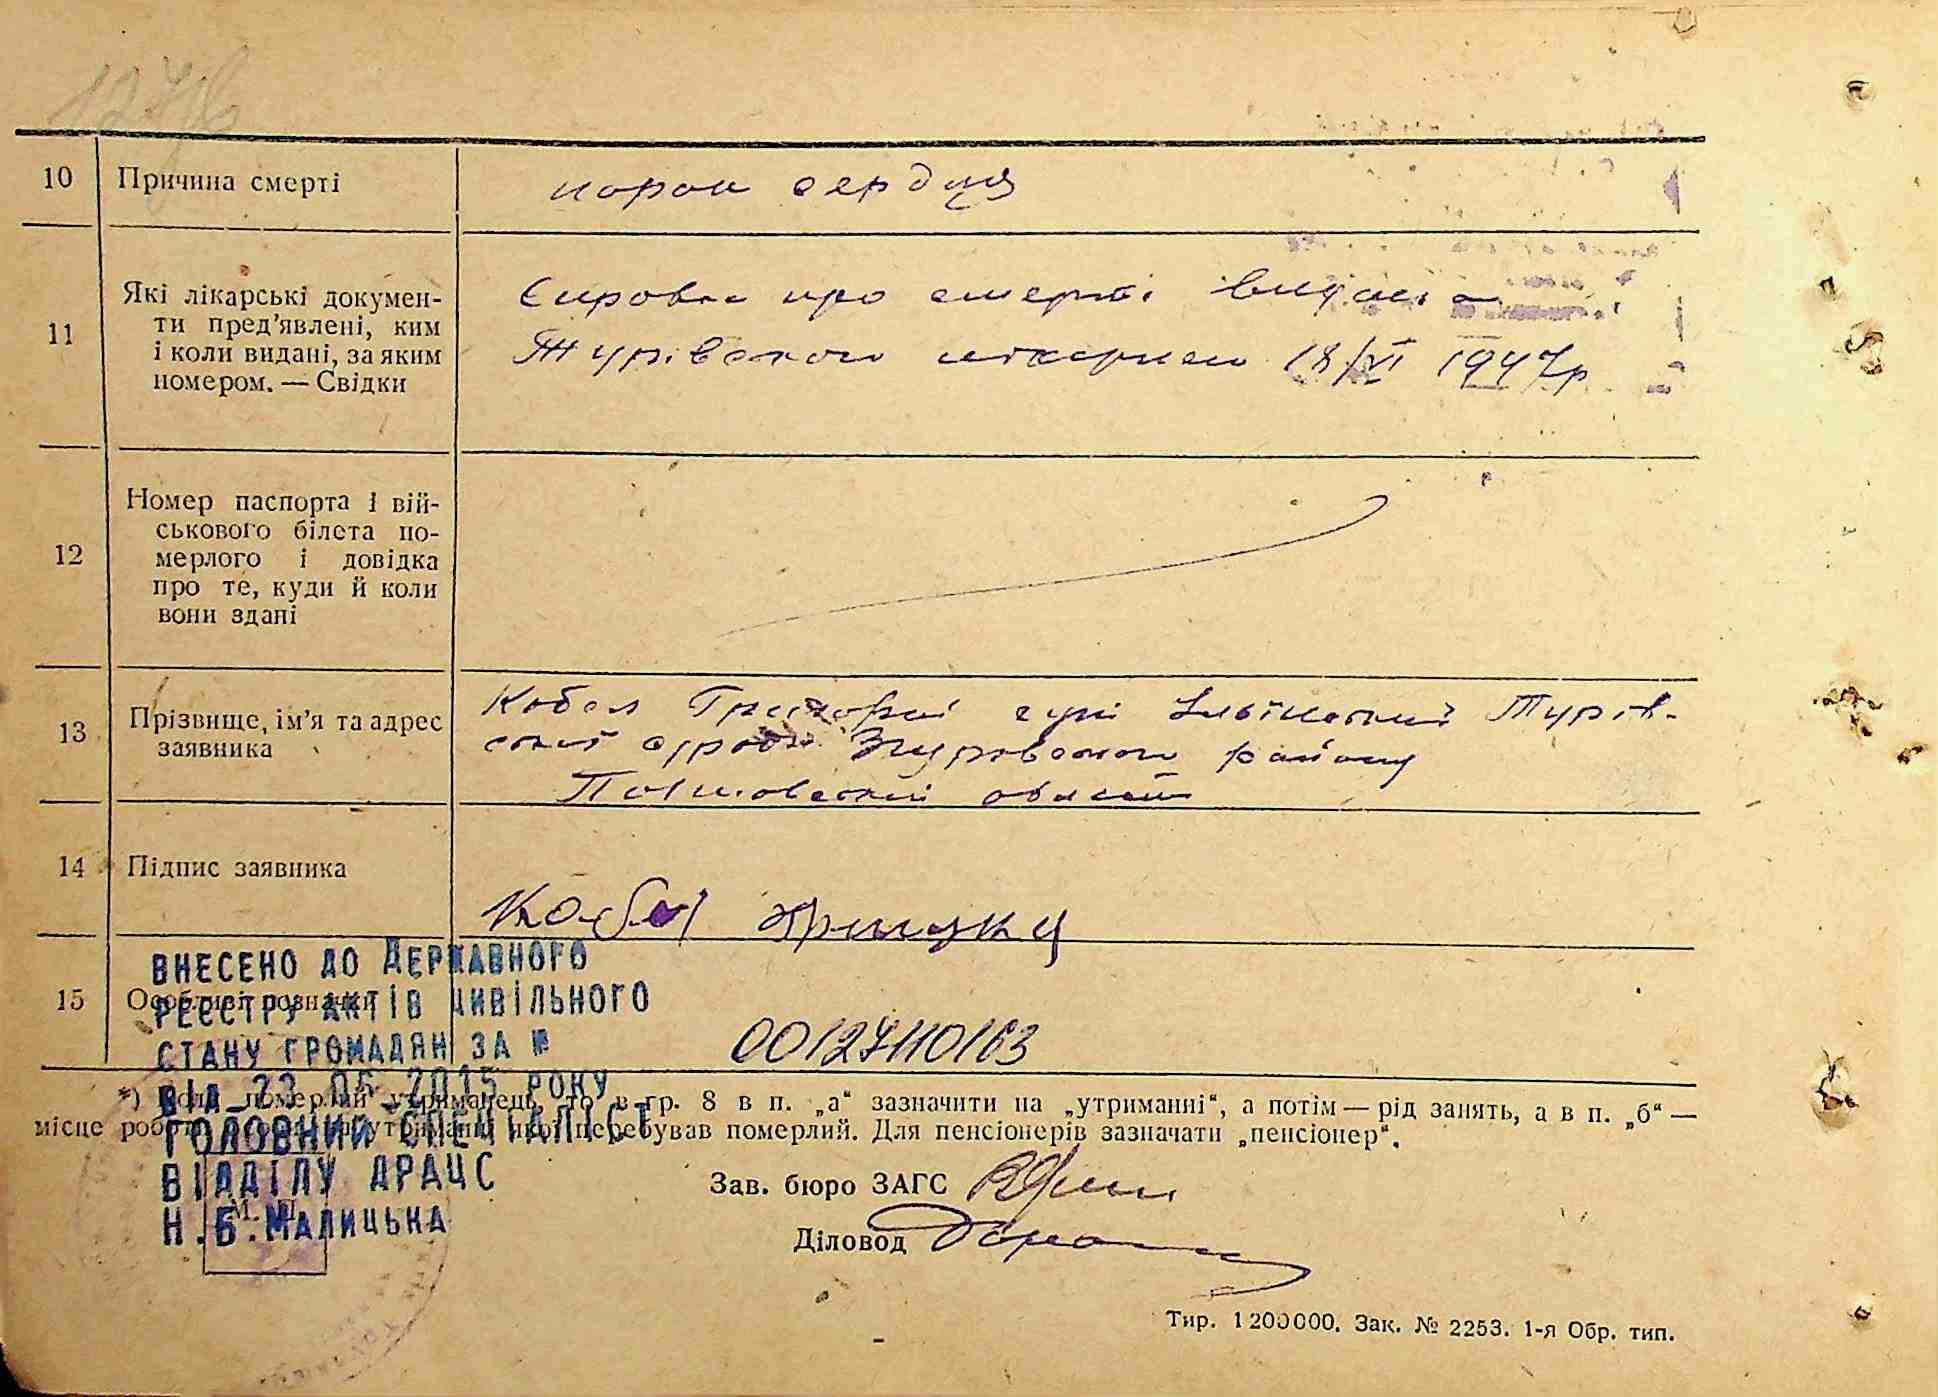 1276
10 Причина смерті порок сердця
11 Які лікарські докумен-
ти пред'явлені, ким
і коли видані, за яким
номером. — Свідки
Справка про смерть видана
Турівскою 18/VI 1947р
12 Номер паспорта і вій-
ськового білета по-
мерлого і довідка
про те, куди й коли
вони здані
13 Прізвище, ім'я та адрес
заявника
Григорий Турів-
Згурівского району
Полтовської області
14 Підпис заявника
15 Особливі розначки
ВНЕСЕНО ДО ДЕРЖАВНОГО
РЕЄСТРУ АКТІВ ЦИВІЛЬНОГО
СТАНУ ГРОМАДЯН ЗА №
00127110163
ВІД 23.06.2015 РОКУ
ГОЛОВНИЙ СПЕЦІАЛІСТ
ВІДДІЛУ ДРАЦС
Н.Б.МАЛИЦЬКА
*) Коли померлий утриманець, то в гр. 8 в п. „а“ зазначити на „утриманні“, а потім — рід занять, а в п. „б“ —
місце роботи утриманні якої перебував померлий. Для пенсіонерів зазначати „пенсіонер“.
Зав. бюро ЗАГС
Діловод
М. П.
Тир. 1200000. Зак. № 2253. 1-я Обр. тип.